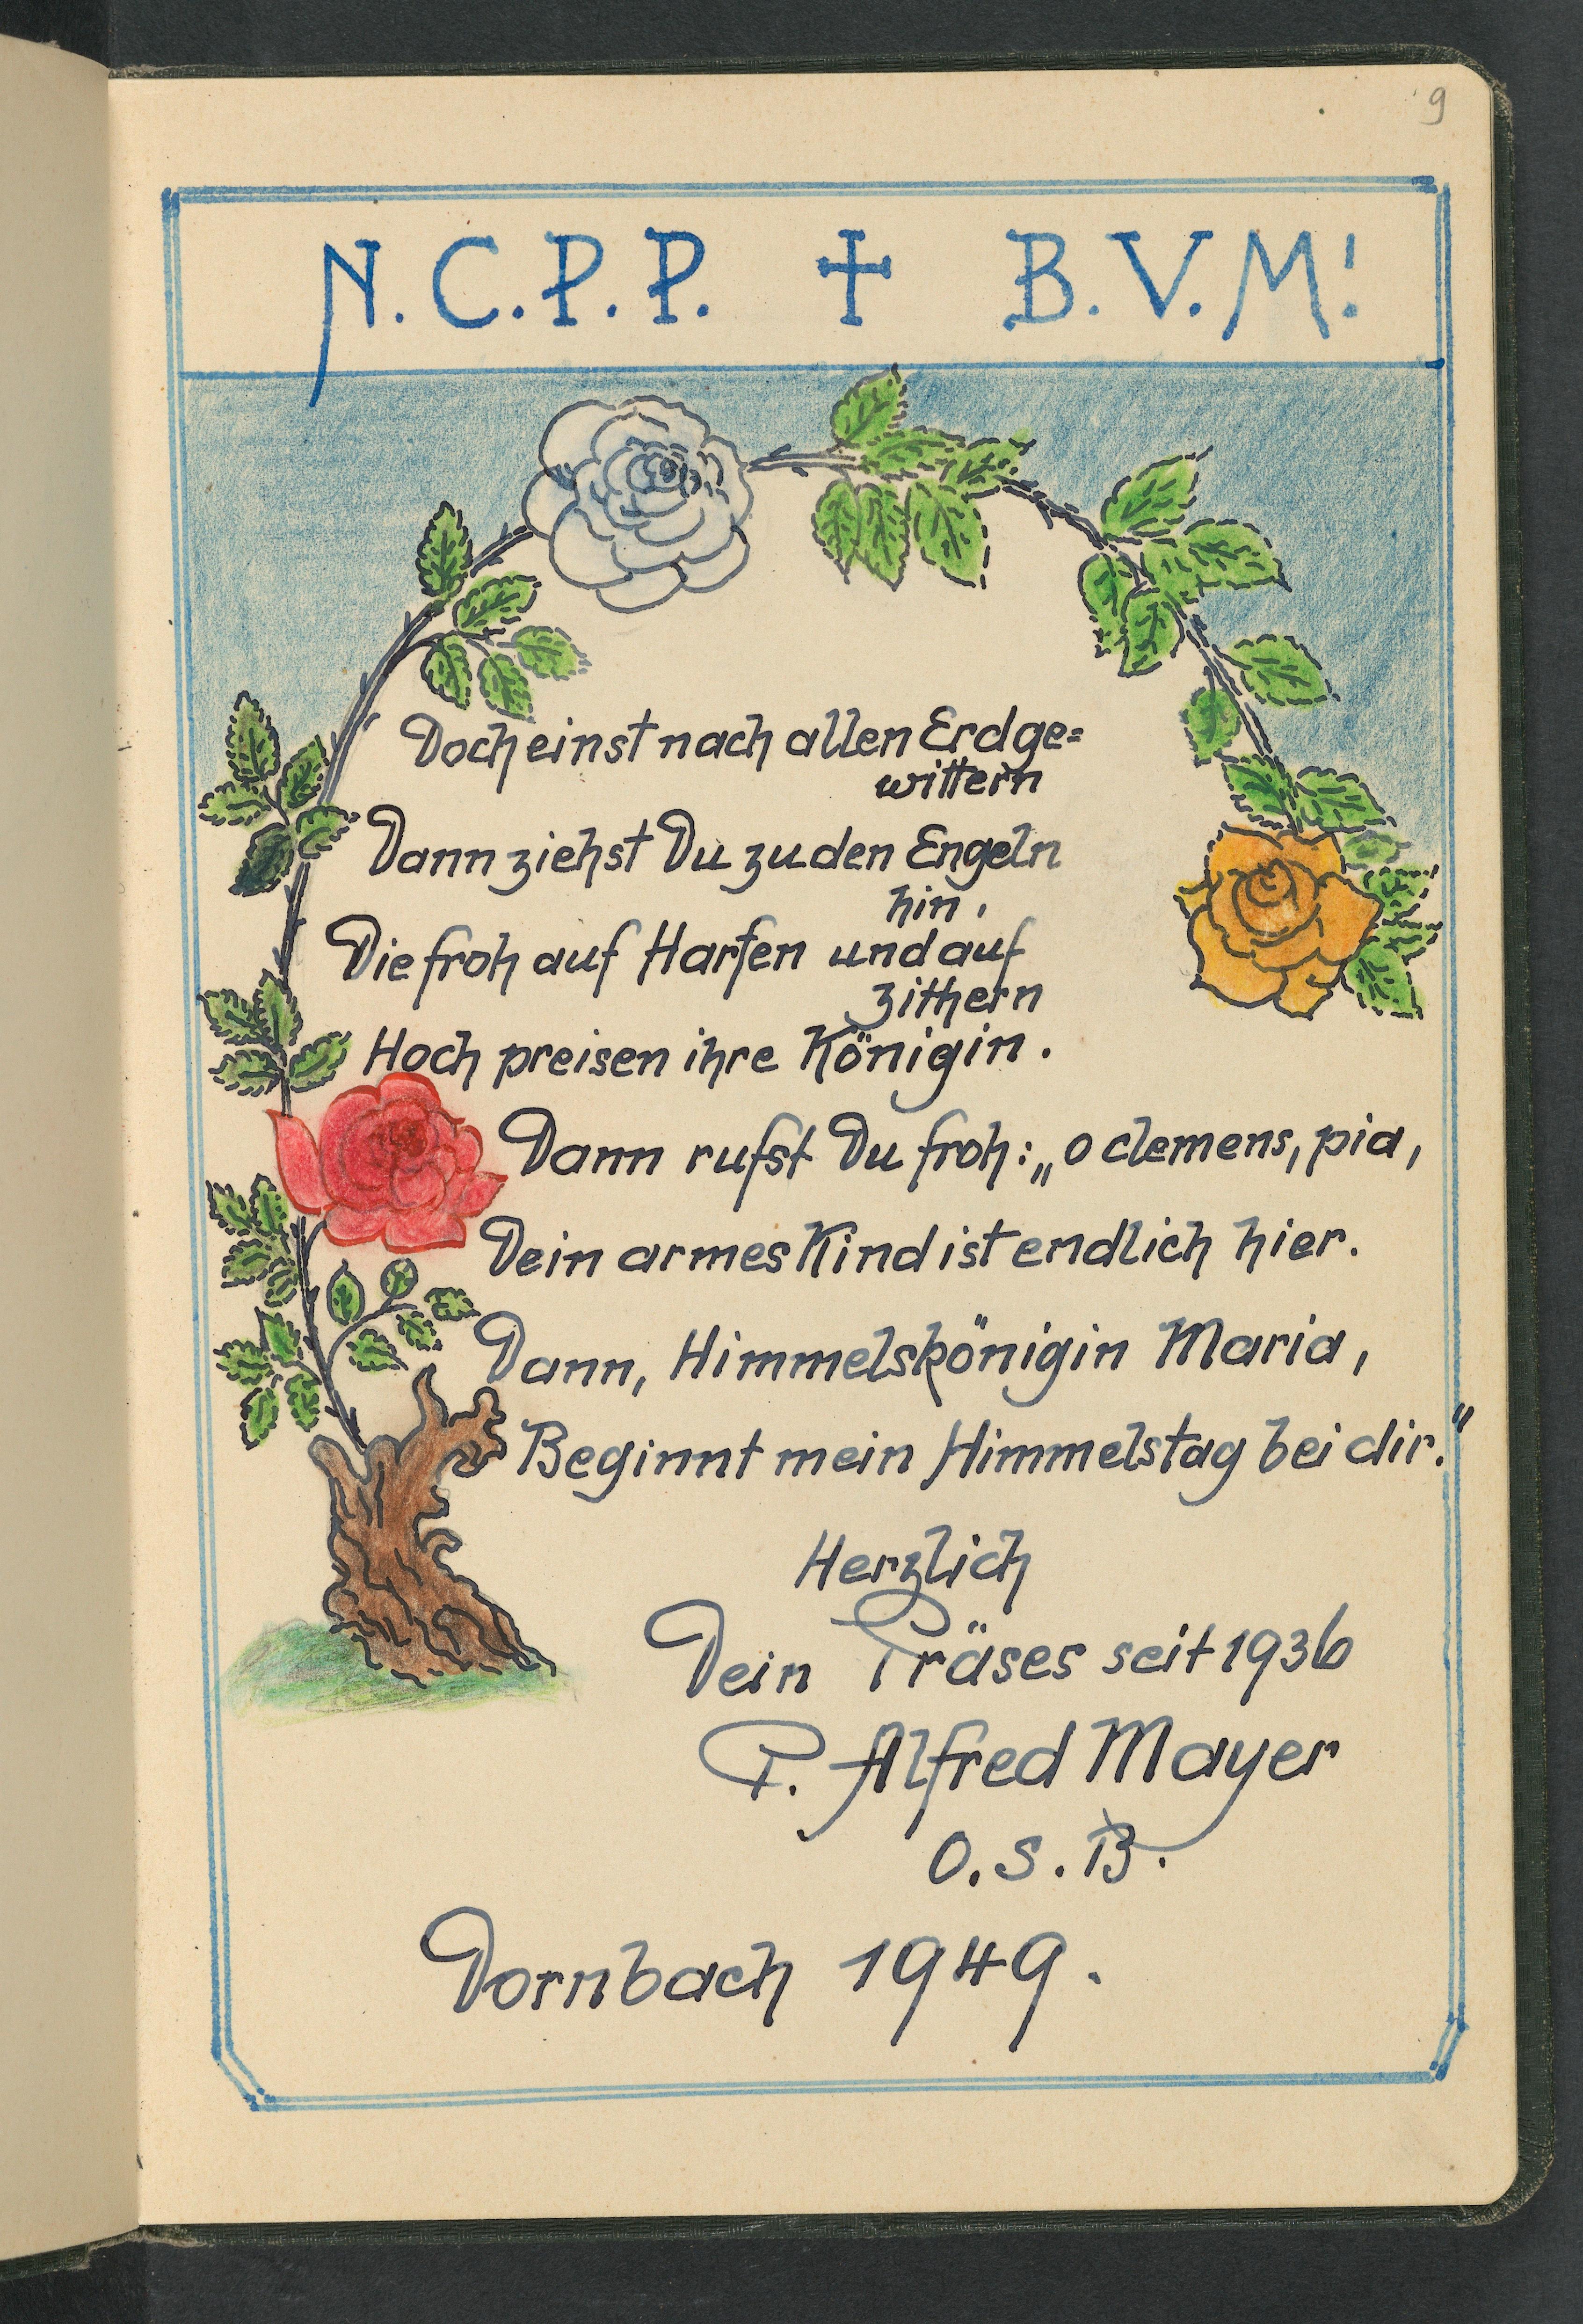 9
N. C. P. P. ✝ B. V. M!
Doch einst nach allen Erdge=
wittern
Dann ziehst Du zu den Engeln
hin,
Die froh auf Harfen und auf
Zithern
Hoch preisen ihre Königin.
Dann rufst Du froh: „o clemens, pia,
Dein armes Kind ist endlich hier.
Dann, Himmelskönigin Maria,
Beginnt mein Himmelstag bei dir."
Herzlich
Dein Präses seit 1936
P. Alfred Mayer
O. S. B.
Dornbach 1949.